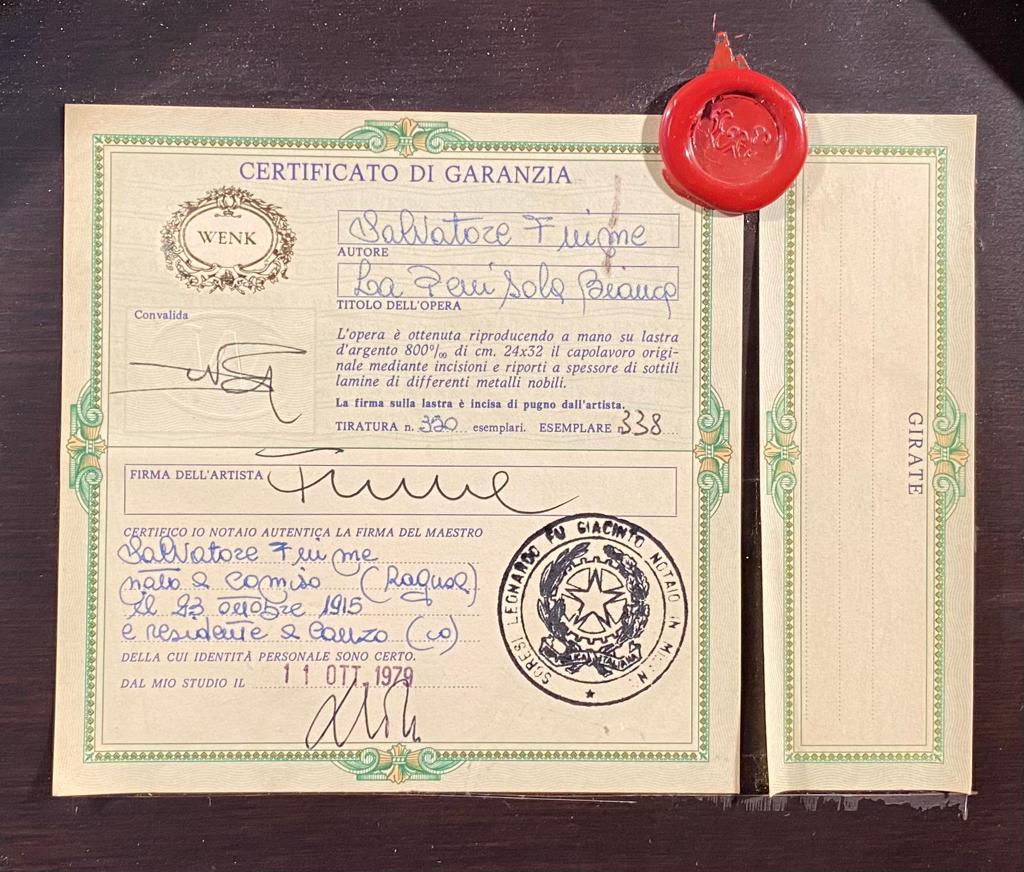 CERTIFICATO DI GARANZIA
WENK
Salvatore Fiume
AUTORE
La Penisola Bianca
TITOLO DELL'OPERA
Convalida
L'opera è ottenuta riproducendo a mano su lastra
d'argento 800‰ di cm. 24x32 il capolavoro origi-
nale mediante incisioni e riporti a spessore di sottili
lamine di differenti metalli nobili.
La firma sulla lastra è incisa di pugno dall'artista.
TIRATURA n. 350 esemplari. ESEMPLARE n. 338
FIRMA DELL'ARTISTA Fiume
CERTIFICO IO NOTAIO AUTENTICA LA FIRMA DEL MAESTRO
Salvatore Fiume
nato a Comiso (Ragusa)
il 23 ottobre 1915
e residente a Canzo (CO)
DELLA CUI IDENTITÀ PERSONALE SONO CERTO.
DAL MIO STUDIO IL 11 OTT. 1979
SORESI LEONARDO FU GIACINTO NOTAIO IN MILANO
REPUBBLICA ITALIANA
GIRATE